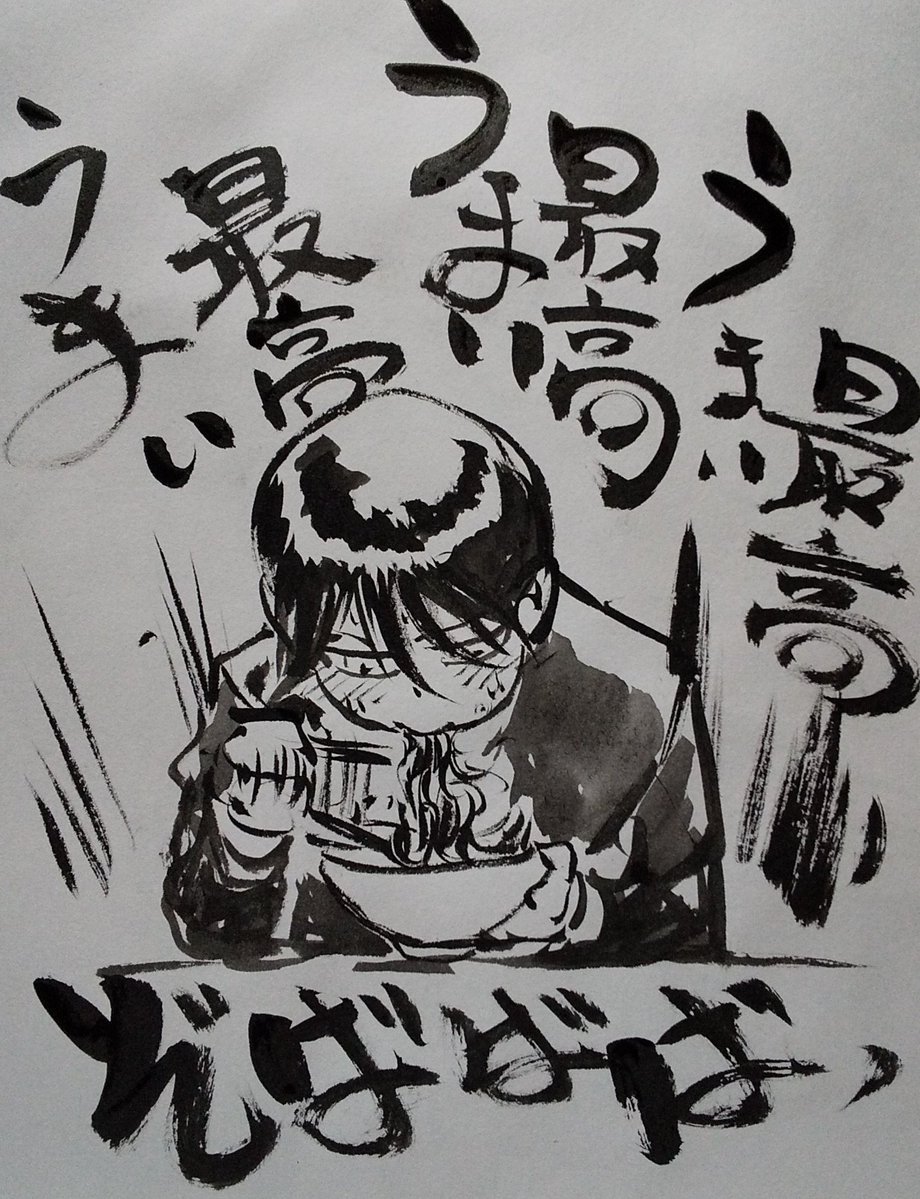 最高
うまい
最高
うまい
最高
うまい
ぞばばばっ